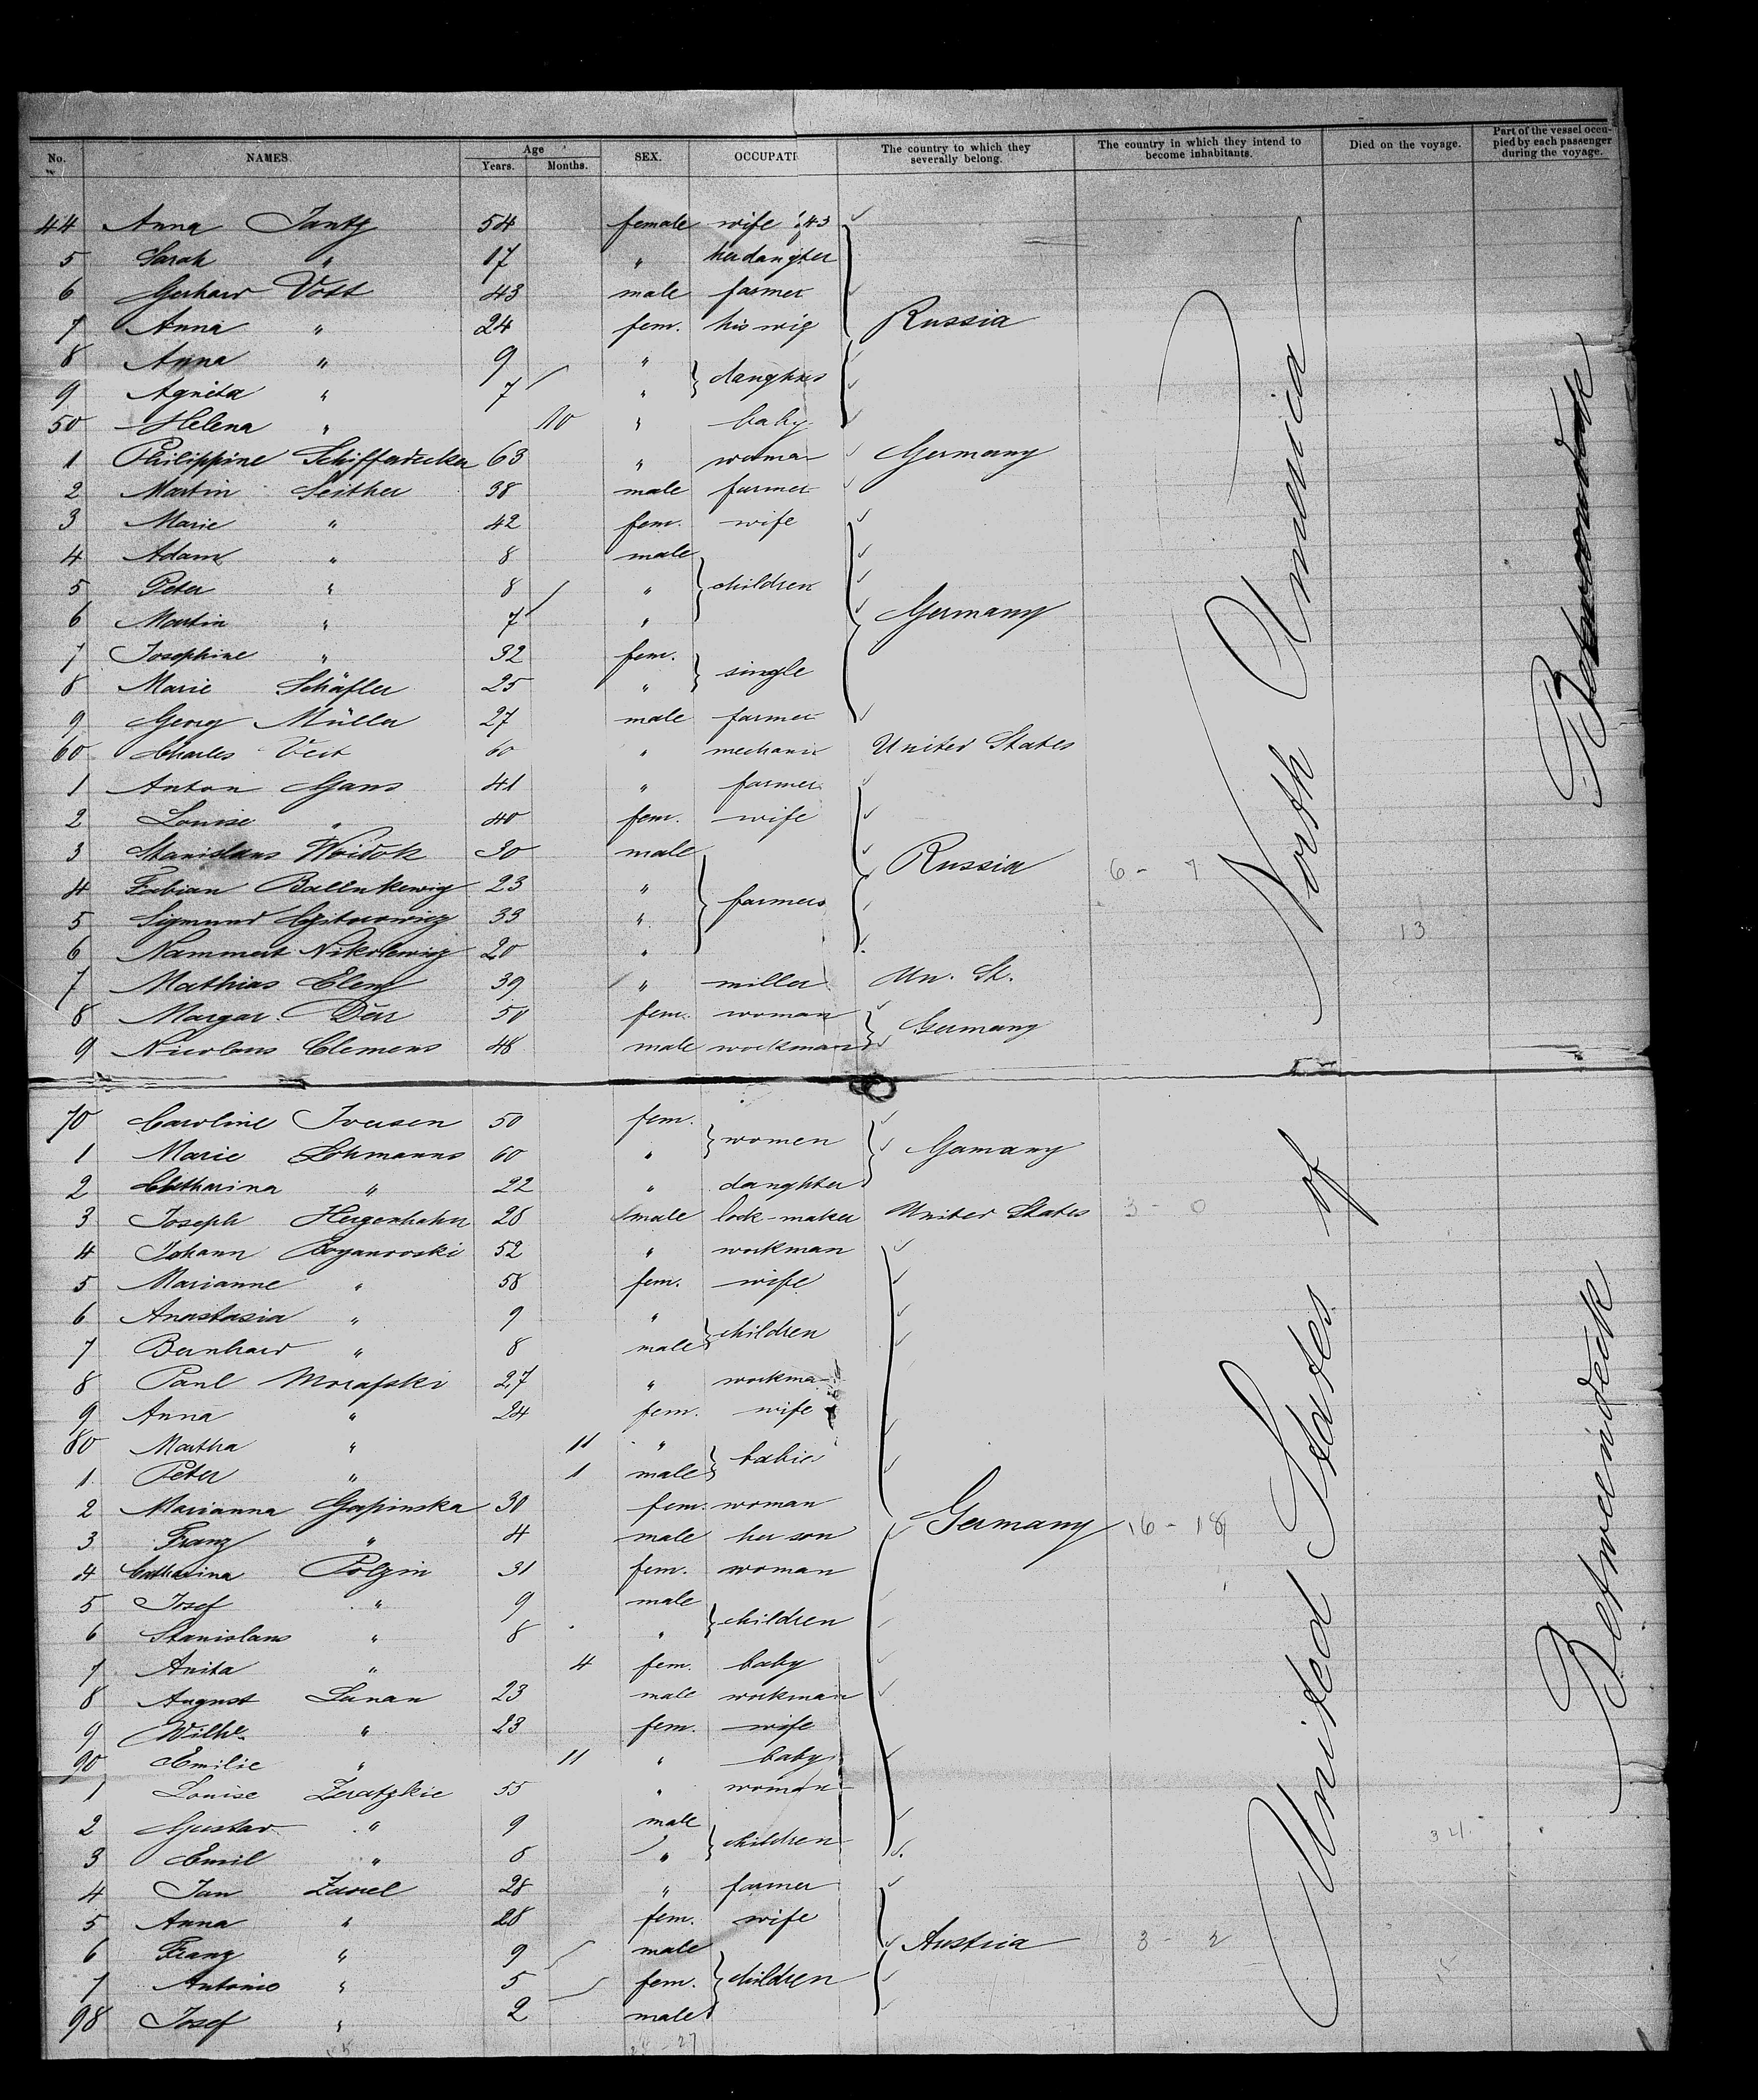 No. NAMES. Age Years. Months. SEX. OCCUPATI The country to which they severally belong. The country in which they intend to become inhabitants. Died on the voyage. Part of the vessel occupied by each passenger during the voyage.
44 Anna Jantz 54 female wife 43
5 Sarah " 17 " her daugter
6 Gerhard Vott 43 male farmer
7 Anna " 24 fem. his wife Russia
8 Anna " 9 "
9 Agneta " 7 " daughters
50 Helena " 10 " baby
1 Philippine Schifferdecker 63 " woman Germany
2 Martin Seither 38 male farmer
3 Marie " 42 fem. wife
4 Adam " 8 male
5 Peter " 8 " children
6 Martin " 7 " Germany
7 Josephine " 32 fem.
8 Marie Schäfler 25 " single
9 Georg Müller 27 male farmer
60 Charles Veit 60 " mechanic United States
1 Anton Gans 41 " farmer
2 Louise " 40 fem. wife
3 Stanislaus Woidok 30 male Russia 6 - 7
4 Fabian 23 "
5 Sigmund 33 " farmers
6 20 " 13
7 Mathias Clem 39 " miller Un. St.
8 Margar. Dörr 50 fem. woman
9 Nicolaus Clemens 48 male workman Germany
70 Caroline Iversen 50 fem.
1 Marie Lohmanns 60 " women Germany
2 Catharina " 22 " daughter
3 Joseph Hergenhahn 28 male lock-maker United States 3 - 0
4 Johann Boganowski 52 " workman
5 Marianne " 58 fem. wife
6 Anastasia " 9 "
7 Bernhard " 8 male children
8 Paul Morafski 27 " workma
9 Anna " 24 fem. wife
80 Martha " 11 "
1 Peter " 1 male babies
2 Marianna Gapinska 30 fem. woman
3 Franz " 4 male her son Germany 16 - 18
4 Catharina Polzin 31 fem. woman
5 Josef " 9 male
6 Stanislaus " 8 " children
7 Anita " 4 fem. baby
8 August Lanan 23 male workman
9 Wilhe. " 23 fem. wife
90 Emilie " 11 " baby
1 Louise Zeratzkie 55 " woman
2 Gustav " 9 male 34
3 Emil " 8 " children
4 Jan Zavrel 28 " farmer
5 Anna " 28 fem. wife
6 Franz " 9 male Austria 3 - 2
7 Antonie " 5 fem. children
98 Josef " 2 male
United States of North America
Betweendeck Betweendeck